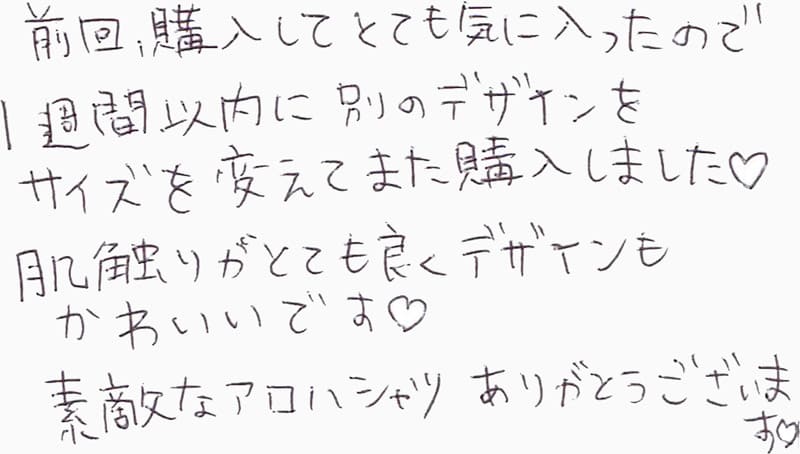 前回、購入してとても気に入ったので
1週間以内に別のデザインを
サイズを変えてまた購入しました♡
肌触りがとても良くデザインも
かわいいです♡
素敵なアロハシャツ ありがとうございま
す♡